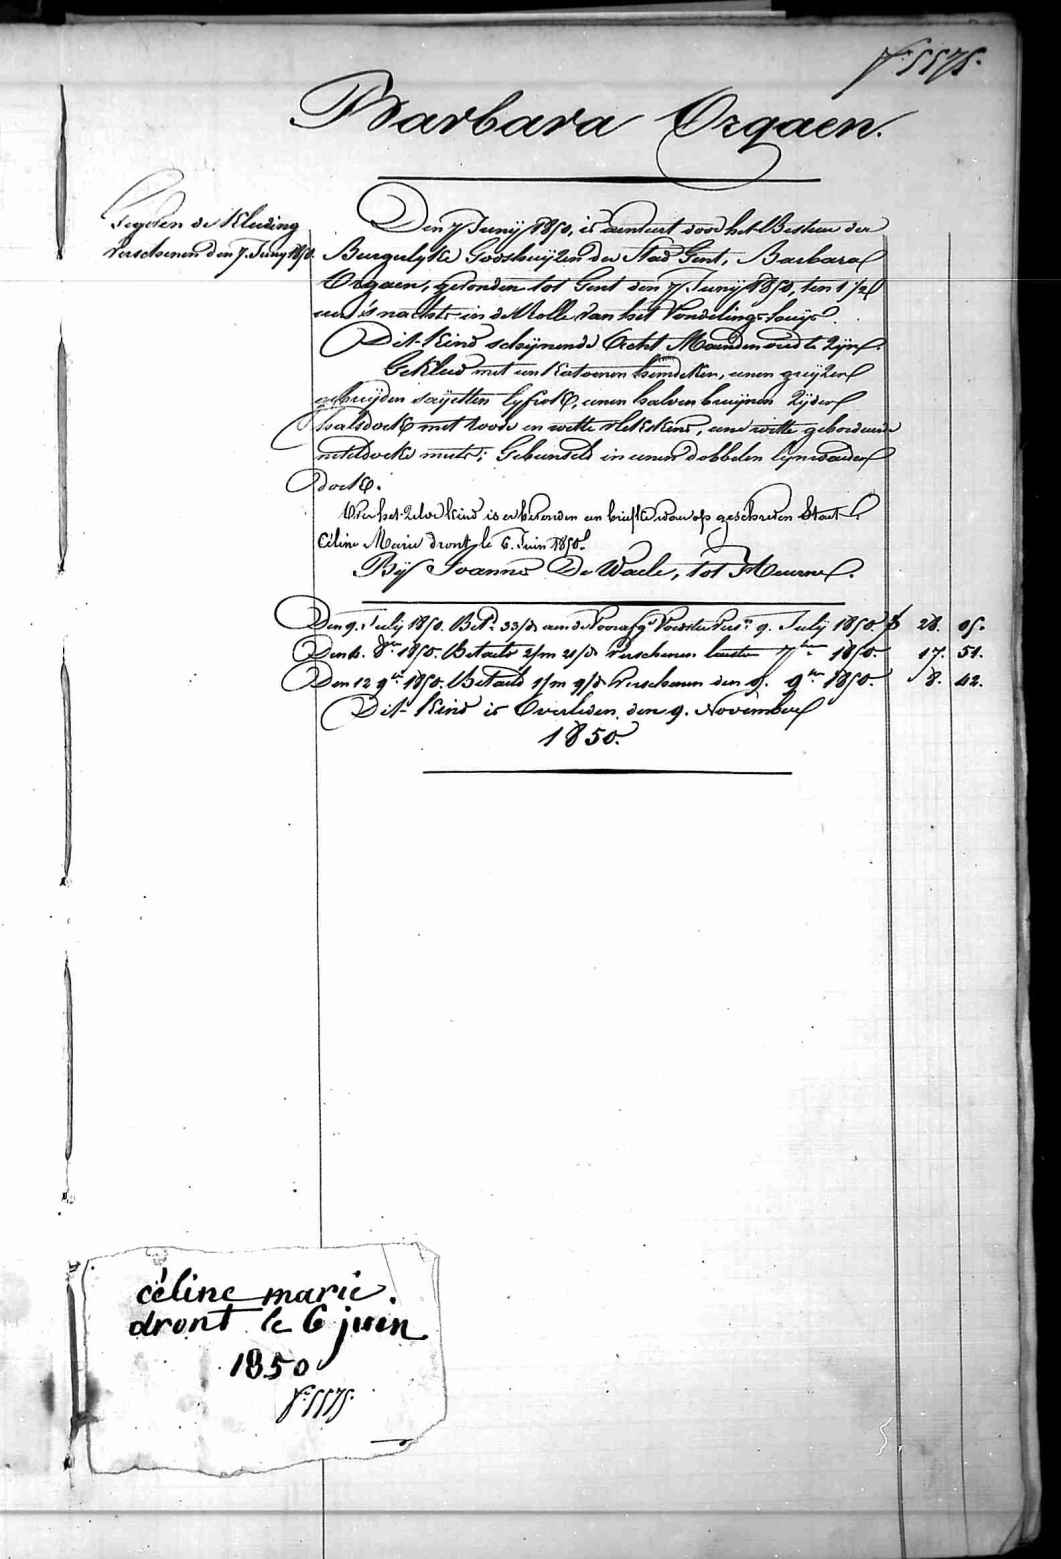 f° 5575.
Barbara Orgaen.
de Kleeding
verschenen den 7. Juny 1850.
Den 7 Junij 1850, is aenveert door het Bestuer der
Burgerlyke Godshuyzen der Stad Gent, Barbara
Orgaen, gevonden tot Gent den 7 Junij 1850, ten 1 1/2
ure 's nachts in de Rolle van het Vondelinghuys.
Dit Kind schijnende Acht Maenden oud te Zijn.
Gekleed met een Katoenen hemdeken, eenen gryzen
gebreyden sayetten lyfrok, eenen halven bruynen Zyden
halsdoek met roode en witte vlekskens, eene witte geborduerde
neteldoeke muts; Gebunseld in eenen dobbelen lynwaeden
doek.
Over het Zelve Kind is er bevonden een briefke waer op geschreven Staet:
Céline Marie dront le 6. Juin 1850.
Bij Joannes De Waele, tot Heurne.
Den 9. July 1850. Bet. 33/d aen de Voorafg. Voedster vers. 9. July 1850. f 28. 05.
Den 12. 8bre 1850. Betaeld 2/m 21/d verschenen lesten 7bre 1850. 17. 51.
Den 12 9bre 1850. Betaeld 1/m 9/d verschenen den 9. 9bre 1850. 8. 42.
Dit Kind is Overleden den 9. November
1850.
céline marie.
dront le 6 juin
1850
f° 5575.